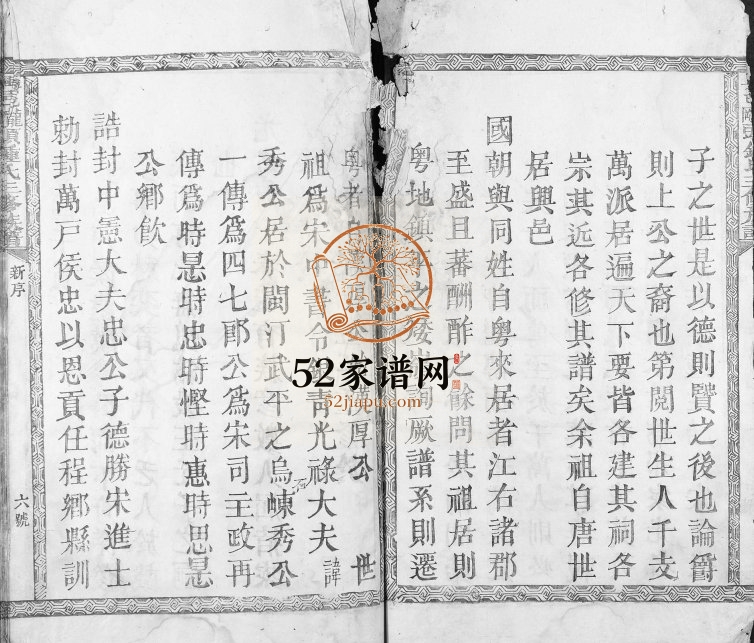 子之世是以德則賢之後也論爵
則上公之裔也第閱世生人千支
萬派居遍天下要皆各建其祠各
宗其近各修其譜矣余祖自唐世
居興邑
國朝與同姓自粵來居者江右諸郡
至盛且蕃酬酢之餘問其祖居則
粵地鎮 之 厥譜系則遷
粵者自 厚公 世
祖為宋中書令 壽光祿大夫 諱
秀公居於閩汀武平之烏崠秀公
一傳為四七郎公為宋司主政再
傳為時昰時忠時慳時憲時思昰
公鄉飲
誥封中憲大夫忠公子德勝宋進士
勑封萬戶侯忠以恩貢任程鄉縣訓
鍾氏三修族譜
新序
六號
52家谱网
52jiapu.com